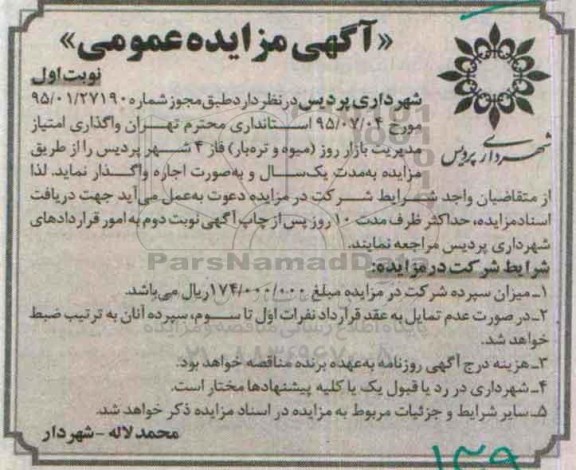 «آگهی مزایده عمومی»
نوبت اول
شهرداری پردیس
شهرداری پردیس در نظر دارد طبق مجوز شماره ۹۵/۰۱/۲۷۱۹۰
مورخ ۹۵/۰۷/۰۴ استانداری محترم تهران واگذاری امتیاز
مدیریت بازار روز (میوه و تره‌بار) فاز ۴ شهر پردیس را از طریق
مزایده به‌مدت یک‌سال و به‌صورت اجاره واگذار نماید. لذا
از متقاضیان واجد شرایط شرکت در مزایده دعوت به‌عمل می‌آید جهت دریافت
اسناد مزایده، حداکثر ظرف مدت ۱۰ روز پس از چاپ آگهی نوبت دوم به امور قراردادهای
شهرداری پردیس مراجعه نمایند.
ParsNamadData
شرایط شرکت در مزایده:
۱ـ میزان سپرده شرکت در مزایده مبلغ ۱۷۴/۰۰۰/۰۰۰ ریال می‌باشد.
۲ـ در صورت عدم تمایل به عقد قرارداد نفرات اول تا سوم، سپرده آنان به ترتیب ضبط
خواهد شد.
پایگاه اطلاع رسانی مناقصه و مزایده
۳ـ هزینه درج آگهی روزنامه به‌عهده برنده مناقصه خواهد بود.
۴ـ شهرداری در رد یا قبول یک یا کلیه پیشنهادها مختار است.
۵ـ سایر شرایط و جزئیات مربوط به مزایده در اسناد مزایده ذکر خواهد شد.
محمد لاله - شهردار
۱۳۹